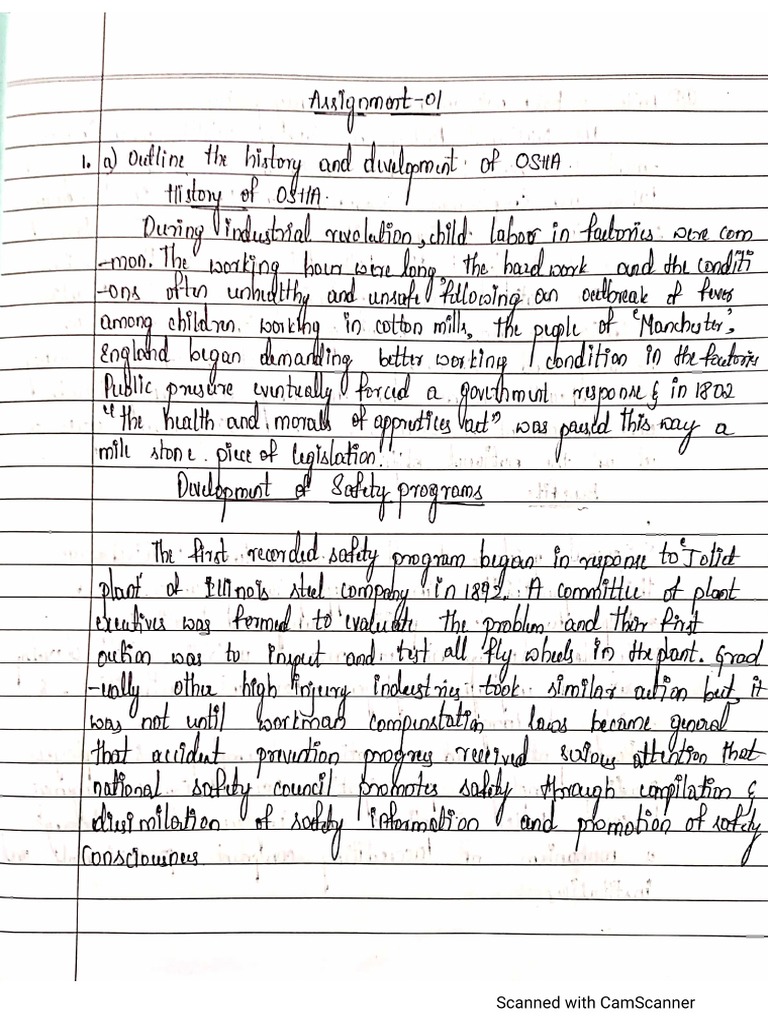 Assignment-01
1. a) Outline the history and development of OSHA.
History of OSHA.
During industrial revolution, child labor in factories were com
-mon. The working hour were long, the hard work and the conditi
-ons often unhealthy and unsafe following an outbreak of fever
among children working in cotton mills, the people of "Manchester",
England began demanding better working condition in the factories
Public pressure eventually forced a government response & in 1802
"the health and morals of apprentices act" was passed this way a
mile stone piece of legislation.
Development of Safety programs
The first recorded safety program began in response to "Joliet
plant of Illinois steel company in 1892. A committee of plant
executives was formed to evaluate the problem and their first
action was to inspect and test all fly wheels in the plant. Grad
-ually other high injury industries took similar action but, it
was not until workman compenstation laws became general
that accident prevention progress received serious attention that
national safety council promotes safety through compilation &
dissimilation of safety information and promotion of safety
consciousness
Scanned with CamScanner